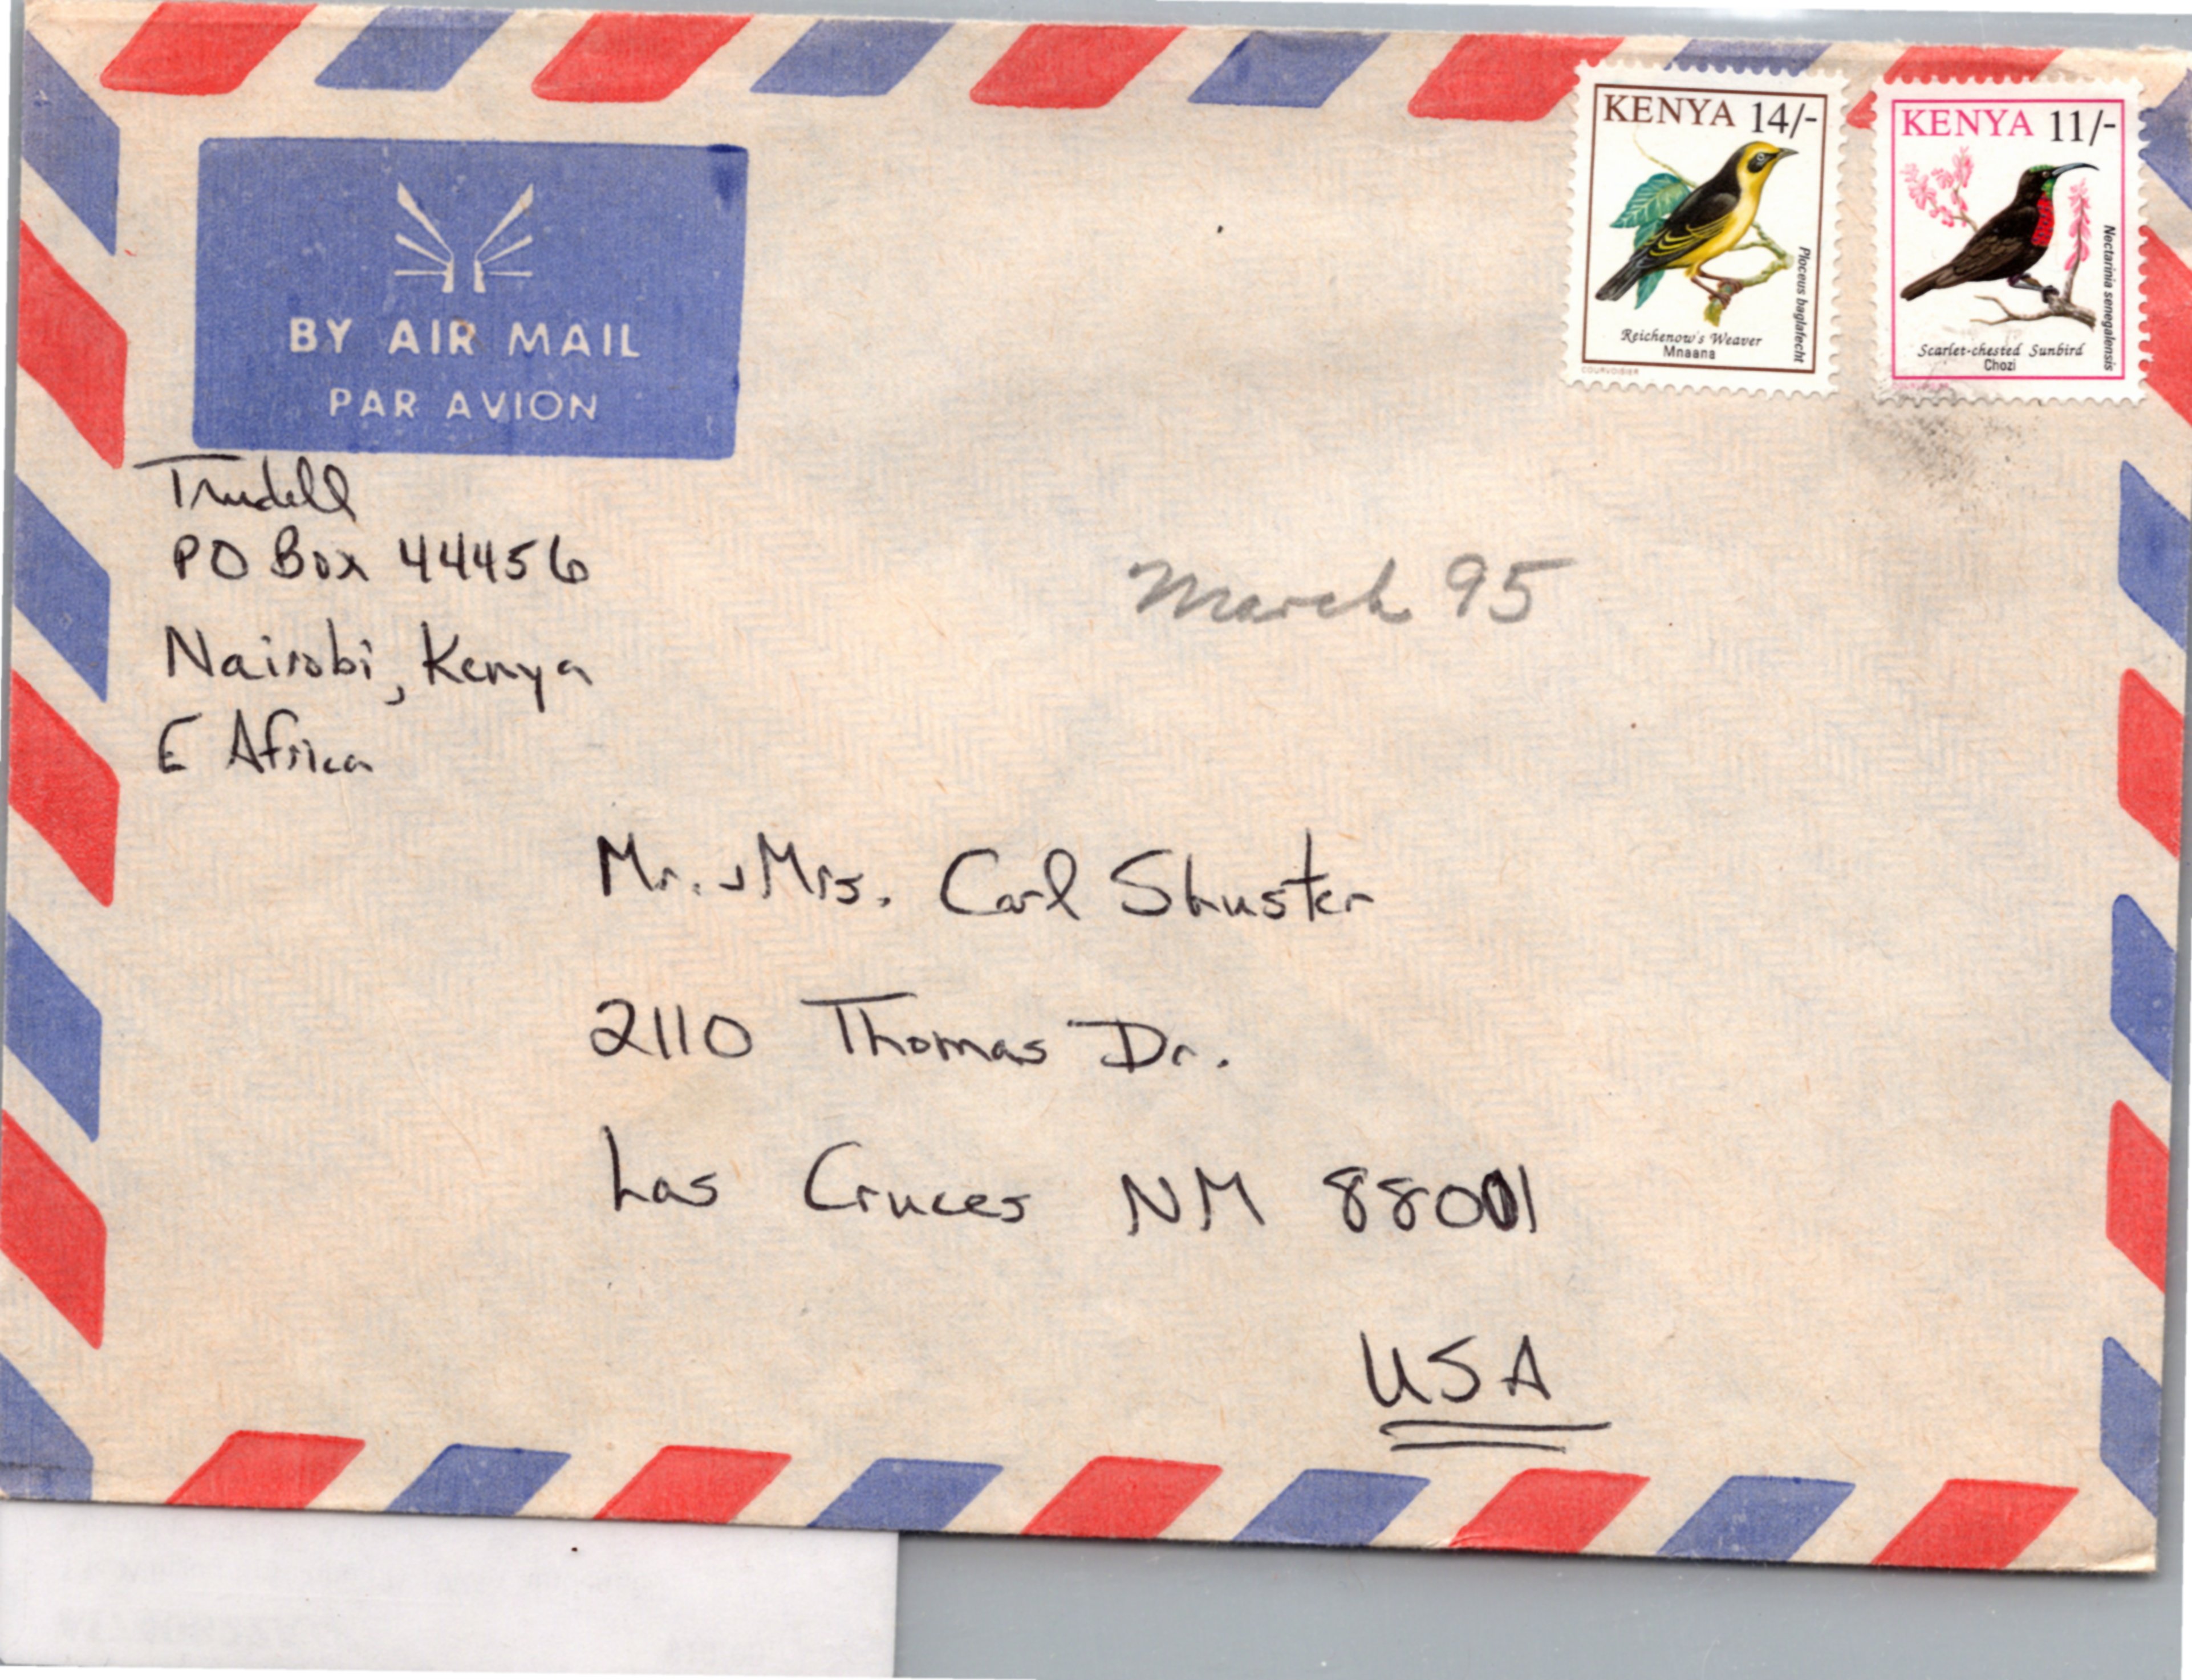 KENYA 14/-
Ploceus baglafecht
Reichenow's Weaver
Mnaana
COURVOISIER
KENYA 11/-
Nectarinia senegalensis
Scarlet-chested Sunbird
Chozi
BY AIR MAIL
PAR AVION
Trudell
PO Box 44456
Nairobi, Kenya
E Africa
March 95
Mr. & Mrs. Carl Shuster
2110 Thomas Dr.
Las Cruces NM 88001
USA